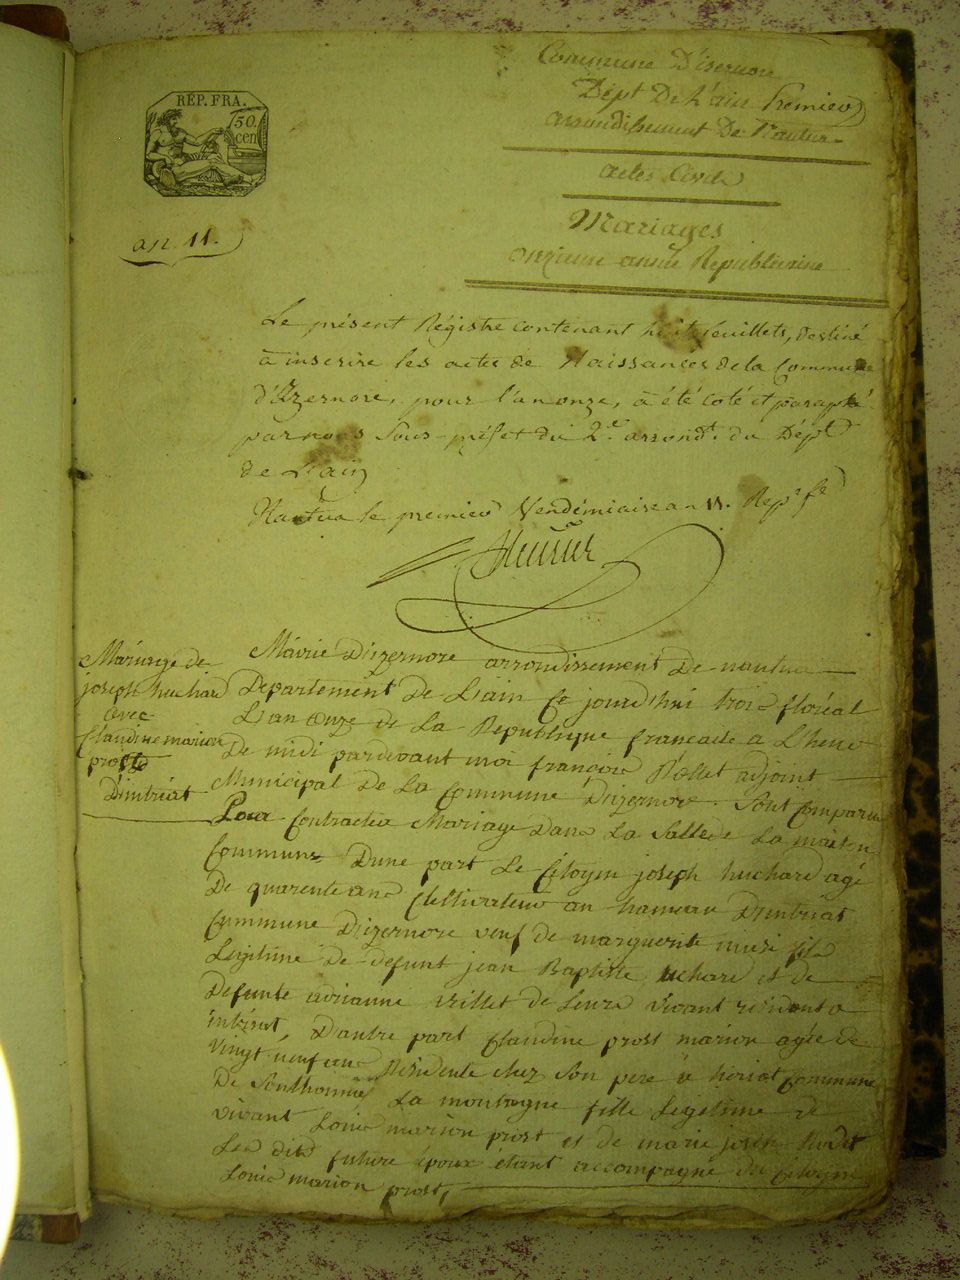 REP. FRA.
50.
cen.
an. 11.
Commune D'isernore
Dépt De L'ain Premier
arrondissement De Nantua
actes Civils
Mariages
onzieme année Republicaine
Le présent Régistre contenant huit feuillets, destiné
à inscrire les actes de Naissances de la Commune
d'Izernore, pour l'an onze, à été coté et paraphé
par nous Sous-préfet du 2.e arrond.t du Dép.t
de L'ain
Nantua le premier Vendémiaire an 11. Rep.e f.e
Mariage de
joseph huchard
avec
Claudine marion
prost
D'intriat
Mairie Dizernore arrondissement De nantua
Departement De L'ain Ce jourd'hui trois floréal
L'an onze de La Republique francaise a L'heure
De midi pardevant moi francois adjoint
Municipal De La Commune Dizernore. Sont Comparu
Pour Contracter Mariage Dans La Salle de La maison
Commune Dune part Le Citoyen joseph huchard agé
De quarente ans Cultivateur au hameau Dintriat
Commune Dizernore veuf de marguerite fils
Legitime De defunt jean Baptiste huchard et de
Defunte adrianne de Leurs vivant residents a
intriat, D'autre part Claudine prost marion agée de
vingt neuf ans Residente chez Son pere à heriat Commune
De La montagne fille Legitime de
vivant Louis marion prost et de marie
Les dits futurs époux étant accompagné du Citoyen
Louis marion prost,